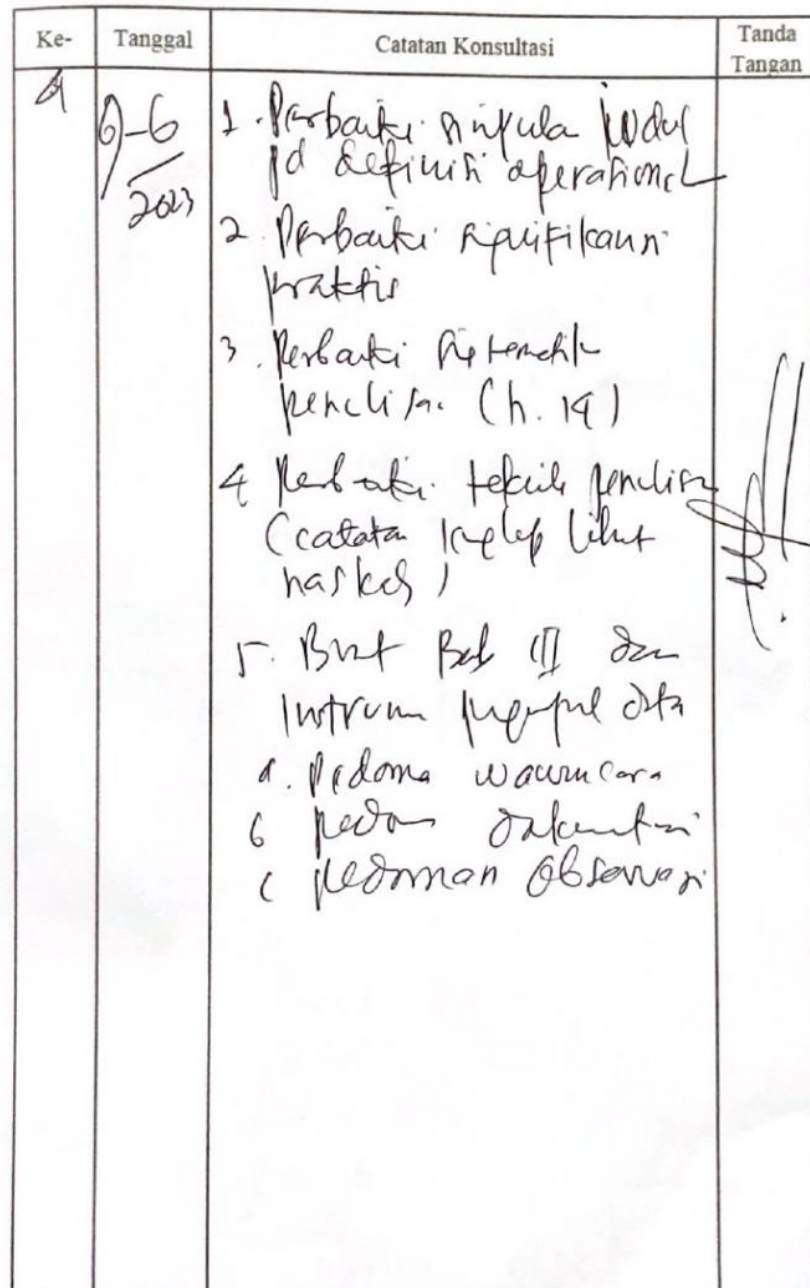 Ke- Tanggal Catatan Konsultasi Tanda Tangan
9-6
2023
1. Perbaiki judul
pd definisi operasional
2. Perbaiki signifikansi
praktis
3. Perbaiki sistematik
penelisn (h. 14)
4 Perbaiki teknik penelisn
(catata lihat
naskah)
5. Buat Bab III dan
Instrum data
a. Pedoma wawancara
b pedom dokumentasi
c pedoman Observasi